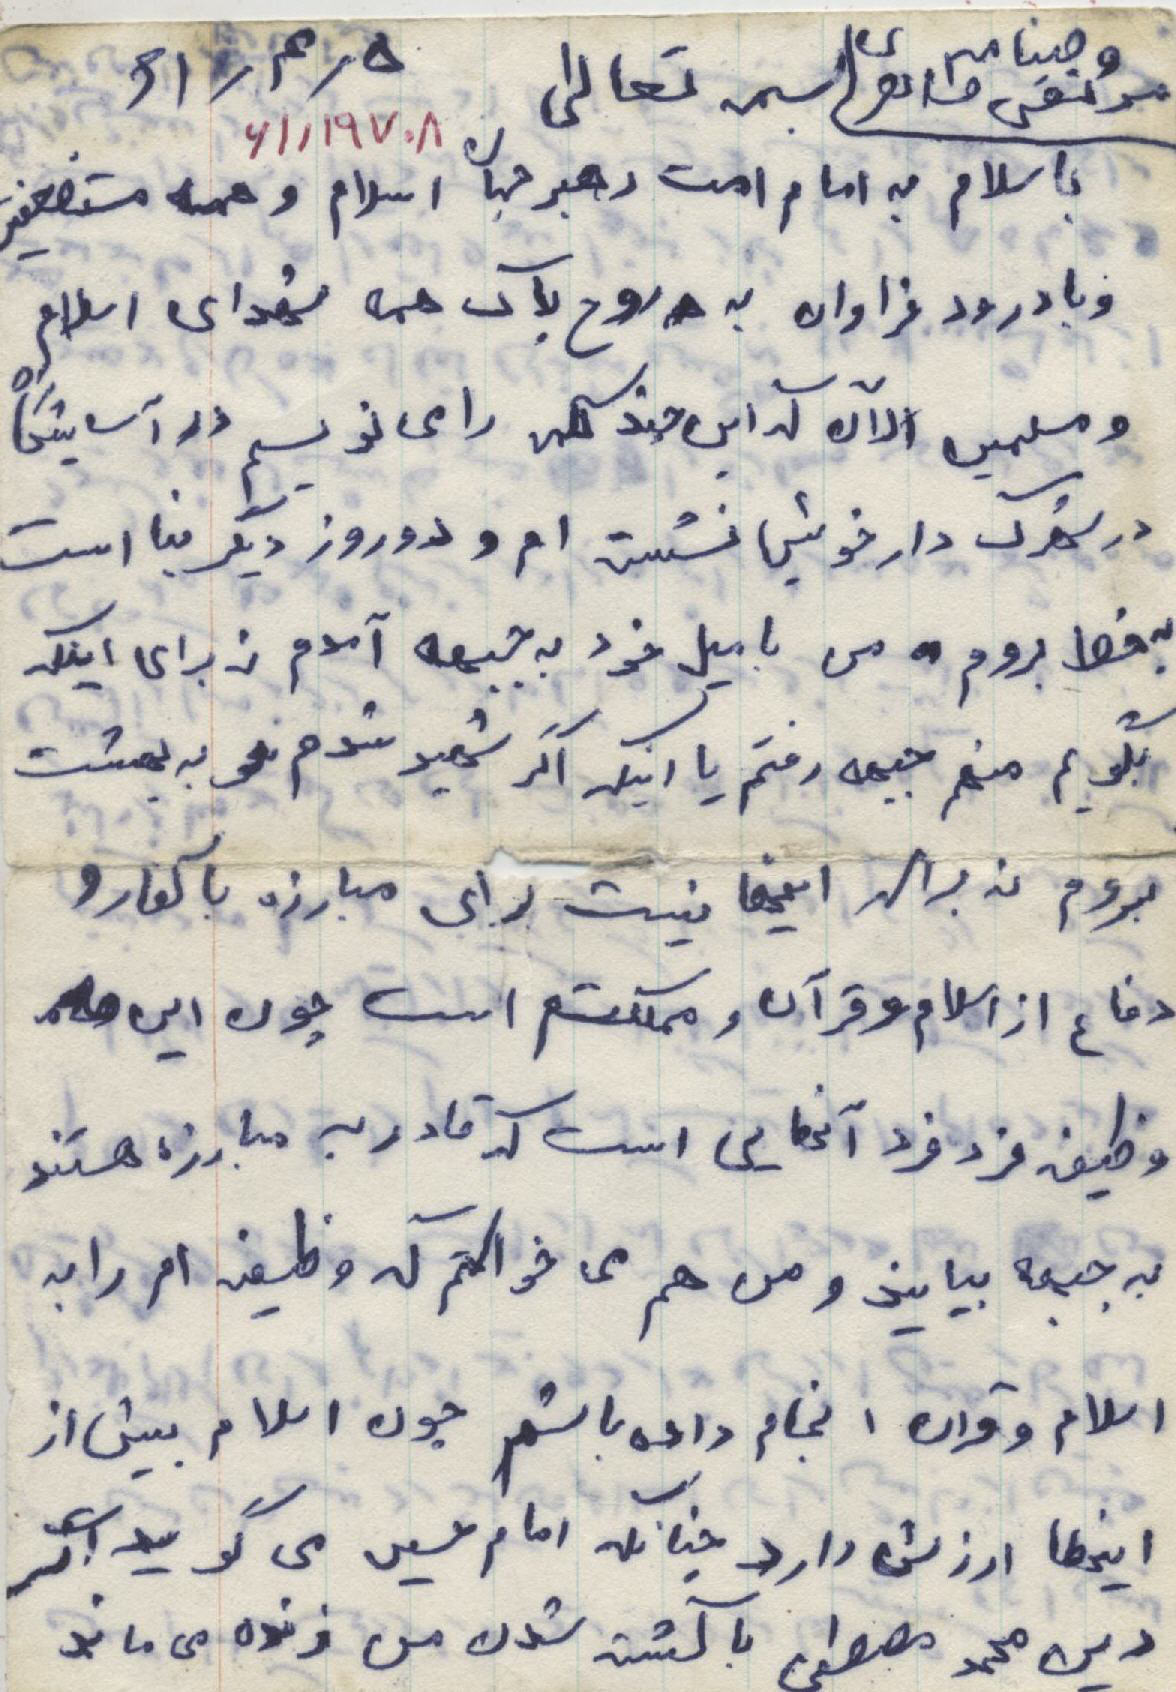 وصیتنامه
مرتضی
بسمه تعالی
۵ / ۳ / ۶۱
۶۱/۱۹۷۰۸
با سلام به امام امت رهبر جهان اسلام و همه مستضعفین
و با درود فراوان به روح پاک همه شهدای اسلام
و مسلمین الآن که این چند کلمه را می نویسم در آسایشگاه
در شهرک دارخوین نشسته ام و دو روز دیگر بنا است
به خط بروم من با میل خود به جبهه آمدم نه برای اینکه
بگویم منهم جبهه رفتم یا اینکه اگر شهید شدم به بهشت
بروم نه برای اینها نیست برای مبارزه با کفار و
دفاع از اسلام و قرآن و مملکتم است چون این
وظیفه فرد فرد آنهایی است که قادر به مبارزه هستند
به جبهه بیایند و من هم می خواستم که وظیفه ام را به
اسلام و قران انجام داده باشم چون اسلام بیش از
اینها ارزش دارد چنانکه امام حسین می گوید اگر
دین محمد مصطفی با کشته شدن من زنده می ماند